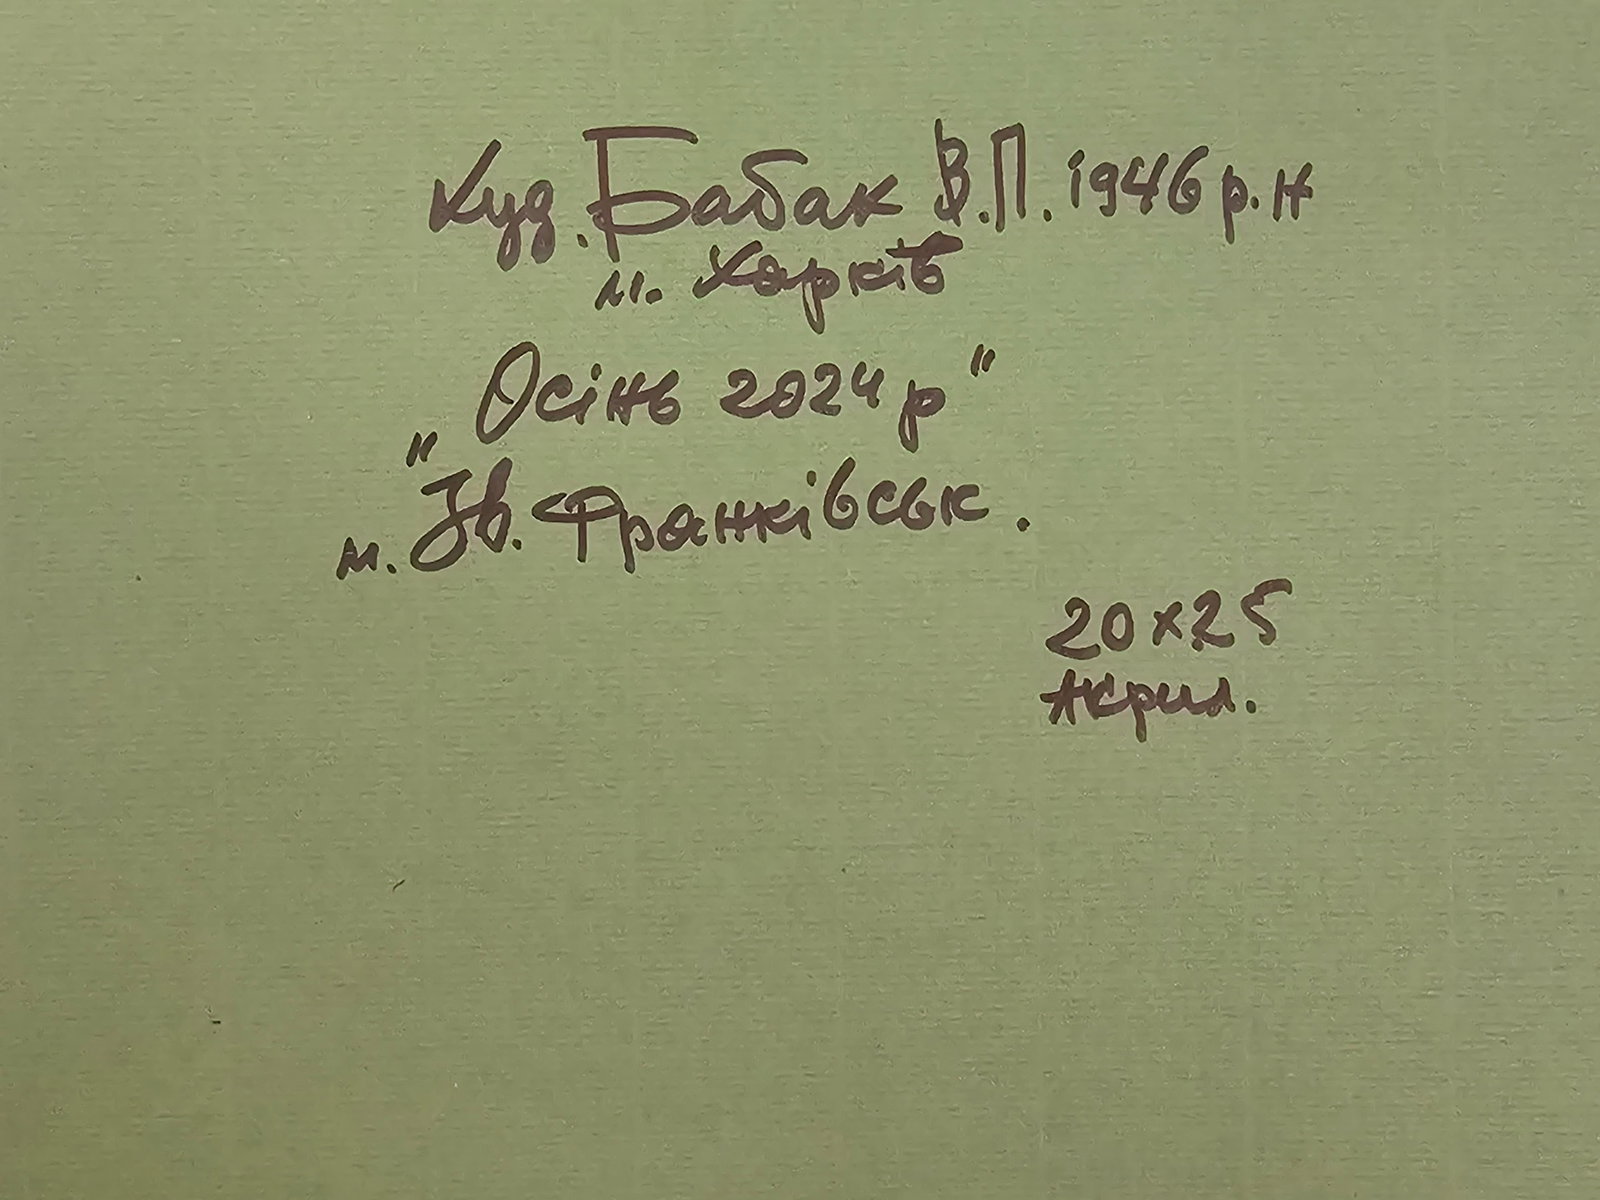 Худ. Бабак В.П. 1946 р.н
м. Харків
„Осінь 2024 р"
м. Ів. Франківськ.
20x25
Акрил.